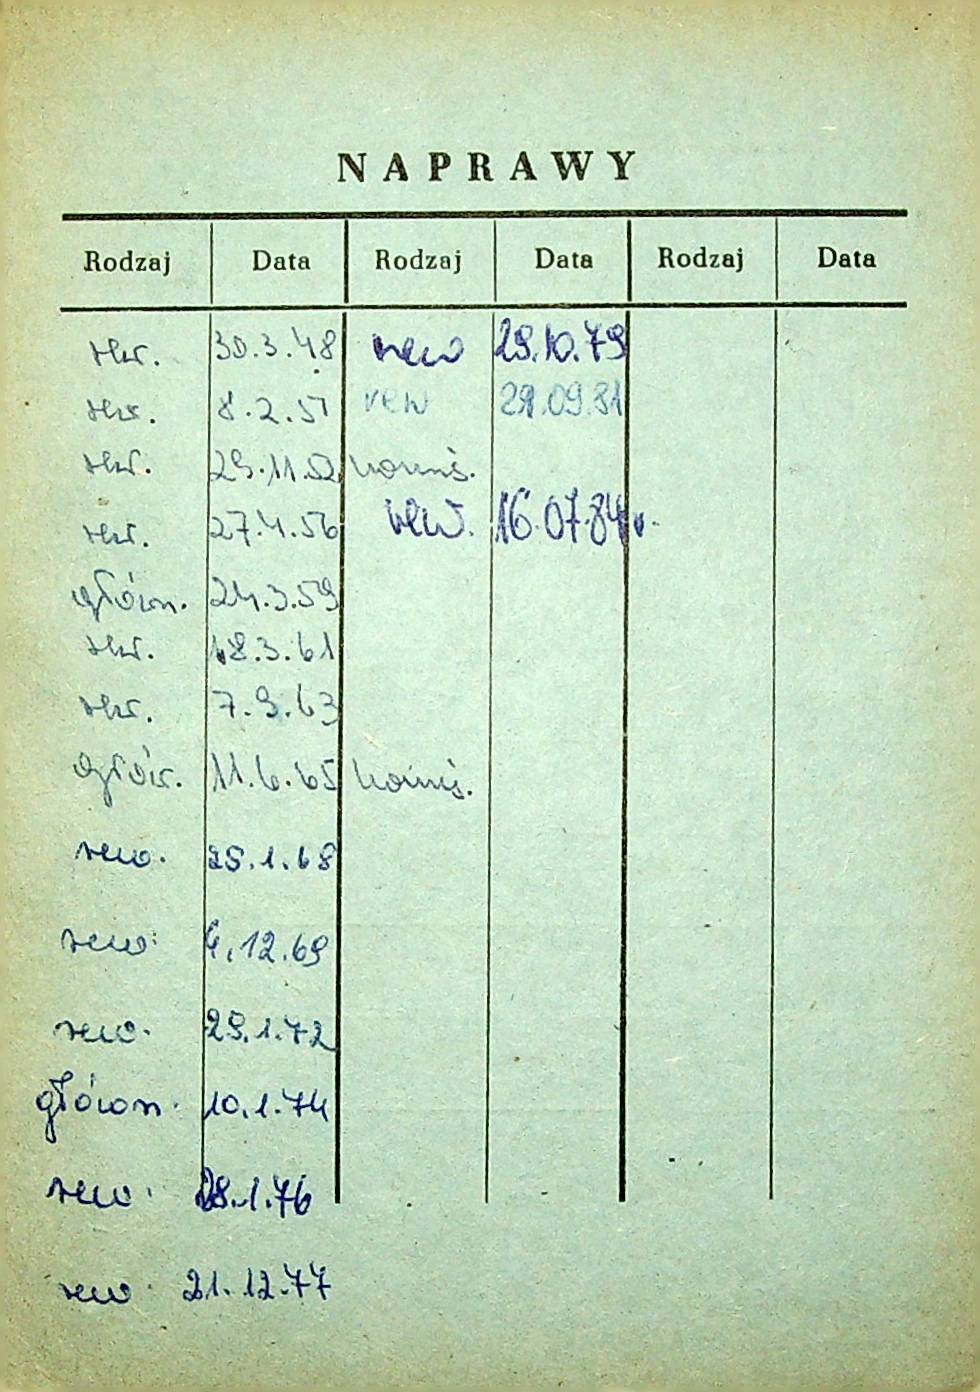 NAPRAWY
Rodzaj Data Rodzaj Data Rodzaj Data
śr. 30.3.48 rew 29.10.79
śr. 8.2.51 rew 29.09.81
śr. 29.11.52
śr. 27.4.56 rew. 16.07.84 r.
główn. 24.3.59
śr. 18.3.61
śr. 7.9.63
główn. 11.6.65
rew. 25.1.68
rew. 4.12.69
rew. 29.1.72
główn. 10.1.74
rew. 28.1.76
rew. 21.12.77